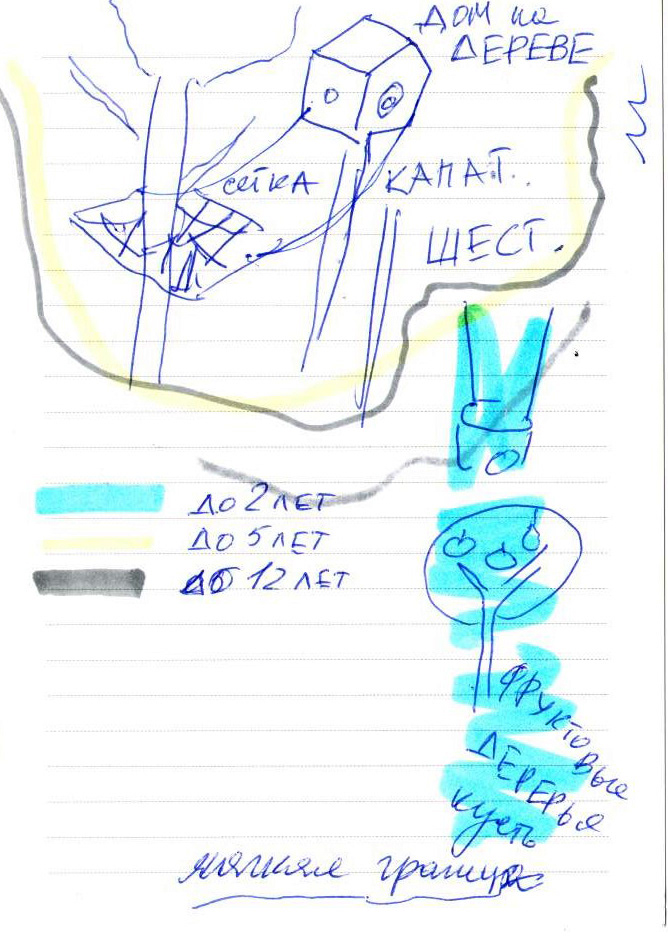 ДОМ на
ДЕРЕВЕ
сетка
КАНАТ.
ШЕСТ.
ДО 2 ЛЕТ
ДО 5 ЛЕТ
ДО 12 ЛЕТ
ФРУКТОВЫЕ
ДЕРЕРЬЯ
кусты
мягкая граница